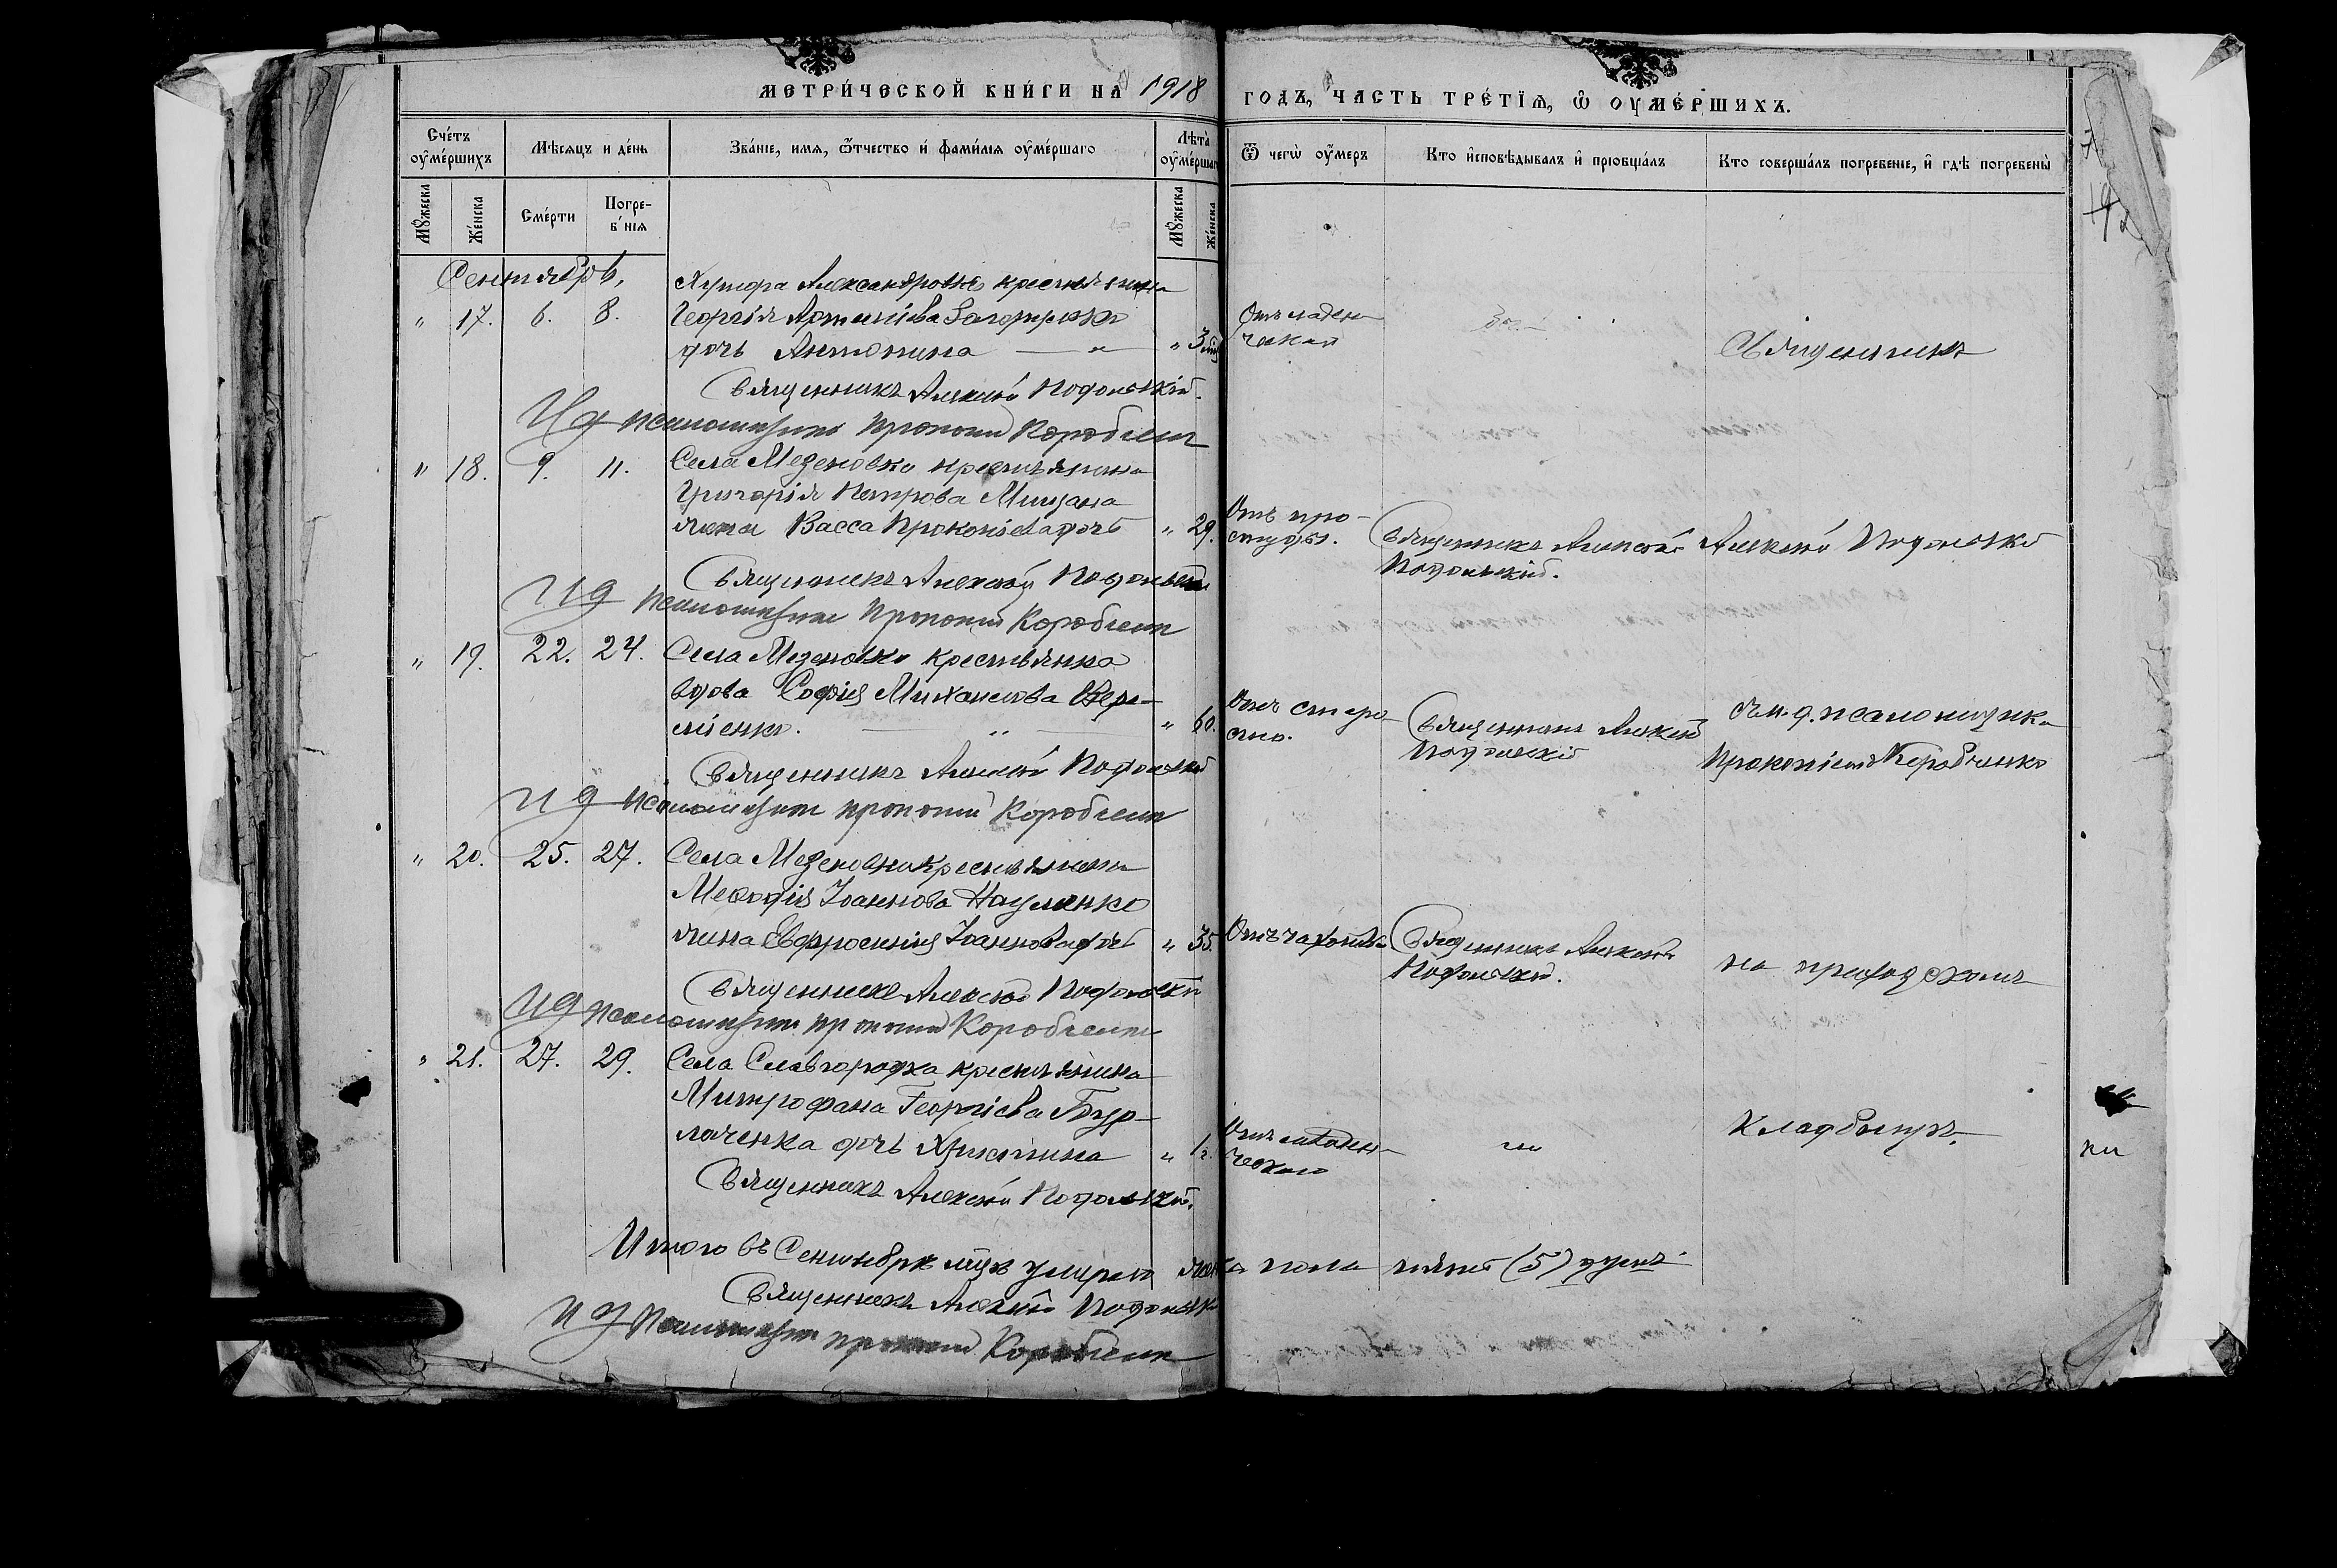 МЕТРИ́ЧЕСКОЙ КНИ́ГИ НА 1918 ГОДЪ, ЧАСТЬ ТРЕ́ТІЯ, Ѿ ОУМЕ́РШИХЪ.
Сче́тъ оуме́ршихъ
Мѣсяцъ и де́нь
Зва́ніе, имя, ѻтчество и фами́лія оуме́ршаго
Лѣта̀ оуме́ршаго
Ѿ чегѡ̀ оумеръ
Кто исповѣдывалъ и пріобща́лъ
Кто соверша́лъ погребеніе, и гдѣ погребены̀
Мꙋжеска
Же́нска
Сме́рти
Погребе́нія
Мꙋжеска
Же́нска
Сентябрь,
Хутора Александровки крестьянина
" 17. 6. 8. Георгія
дочь Антонина — " — " 3
Отъ младен-
ческой
Священникъ
Священникъ Алексій Подольскій.
И д псаломщика Прокопій Коробченко
" 18. 9. 11. Села Мезеновки крестьянина
Григорія Петрова Мищана
жена Васса Прокопіева дочь " 29.
Отъ про-
студы.
Священникъ Алексій
Подольскій.
Алексій Подольскій
Священникъ Алексій Подольскій
И д псаломщика Прокопій Коробченко
" 19. 22. 24. Села Мезеновки крестьянка
вдова Софія Михаилова Вере-
міенко. " 60.
Отъ старо-
сти.
Священникъ Алексій
Подольскій
съ и. д. псаломщика
Прокопіемъ Коробченко
Священникъ Алексій Подольскій
И д псаломщика Прокопій Коробченко
" 20. 25. 27. Села Мезеновки крестьянина
Меѳодія Іоаннова Науменко
жена Евфросинія Іоаннова дочь " 35.
Отъ чахотки
Священникъ Алексій
Подольскій.
на приходскомъ
Священникъ Алексій Подольскій
И д псаломщика Прокопій Коробченко
" 21. 27. 29. Села Славгородка крестьянина
Митрофана Георгіева Бур-
лаченка дочь Христина " 1 г.
Отъ младен-
ческой
кладбищѣ.
Священникъ Алексій Подольскій.
Итого въ Сентябрѣ мцѣ умерло жен-а пола пять (5) душъ
Священникъ Алексій Подольскій
И д псаломщика Прокопій Коробченко